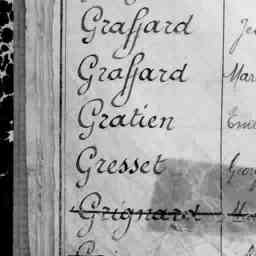 Graffard Je
Graffard Mar
Gratien Emil
Gresset Georg
Grignard